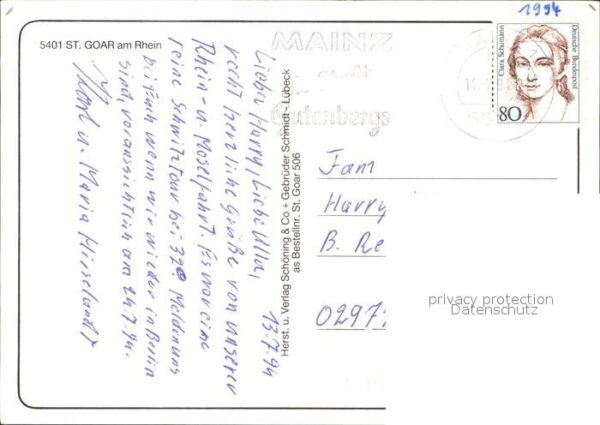 1994
5401 ST. GOAR am Rhein
MAINZ
Gutenbergs
Clara Schumann
Deutsche Bundespost
80
13.7.94
Lieber Harry, Liebe Ulla,
recht herzliche Grüße von unserer
Rhein- u. Moselfahrt. Es war eine
reine Schwitztour bei 32° Meldenuns
bei Euch wenn wir wieder in Berlin
sind, voraussichtlich am 24.7.94.
u. Maria
Herst. u. Verlag Schöning & Co + Gebrüder Schmidt - Lübeck
as Bestellnr. St. Goar 506
Fam
Harry
B. Re
0297
privacy protection
Datenschutz